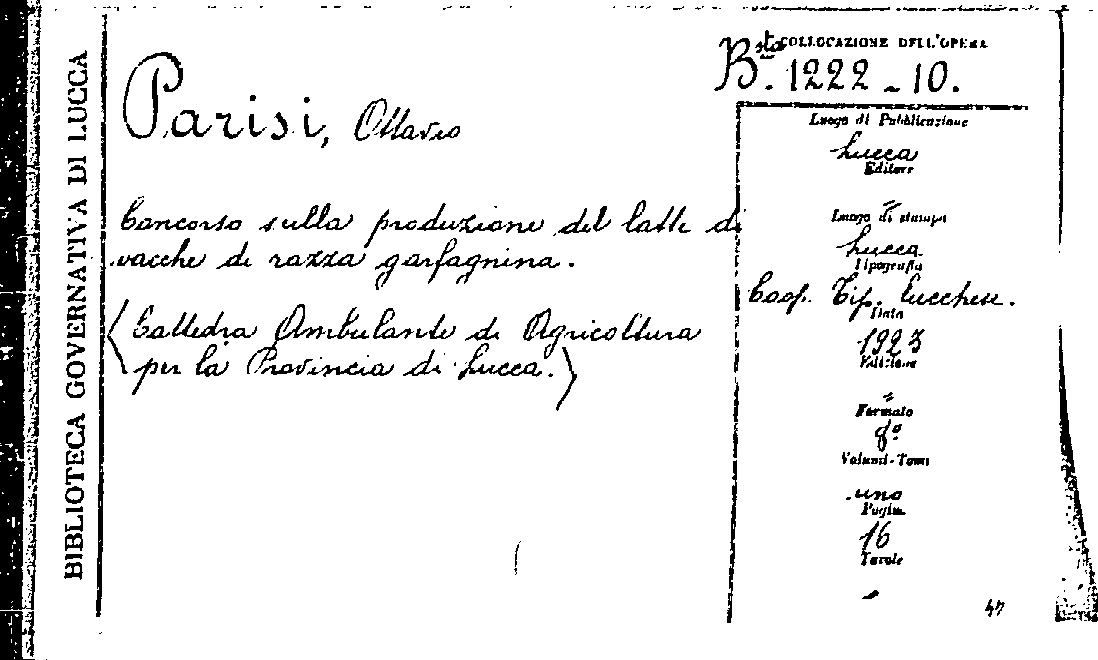 BIBLIOTECA GOVERNATIVA DI LUCCA
Parisi, Ottavio
Concorso sulla produzione del latte di
vacche di razza garfagnina.
(Cattedra Ambulante di Agricoltura
per la Provincia di Lucca.)
COLLOCAZIONE DELL'OPERA
Bsta. 1222 - 10.
Luogo di Pubblicazione
Lucca
Editore
Luogo di stampa
Lucca
Tipografia
Coop. Tip. Lucchese.
Data
1923
Edizione
Formato
8º
Volumi-Tomi
uno
Pagine
16
Tavole
47